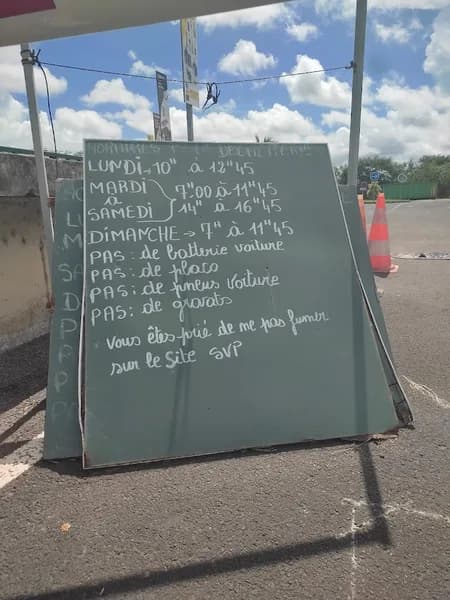 HORAIRES
LUNDi → 10" à 12"45
MARDi
à
SAMEDi
7"00 à 11"45
14" à 16"45
DiMANCHE → 7" à 11"45
PAS: de batterie voiture
PAS: de placo
PAS: de pneus Voiture
PAS: de gravats
Vous êtes prié de ne pas fumer
sur le Site SVP